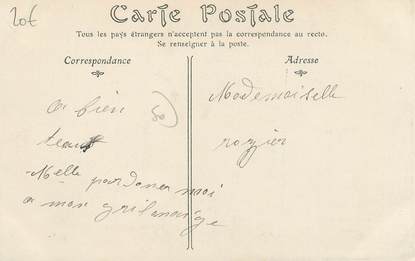 20€
Carte Postale
Tous les pays étrangers n'acceptent pas la correspondance au recto.
Se renseigner à la poste.
Correspondance
Adresse
a bien
50
Mademoiselle
rozier
Melle pardoner moi
a mon